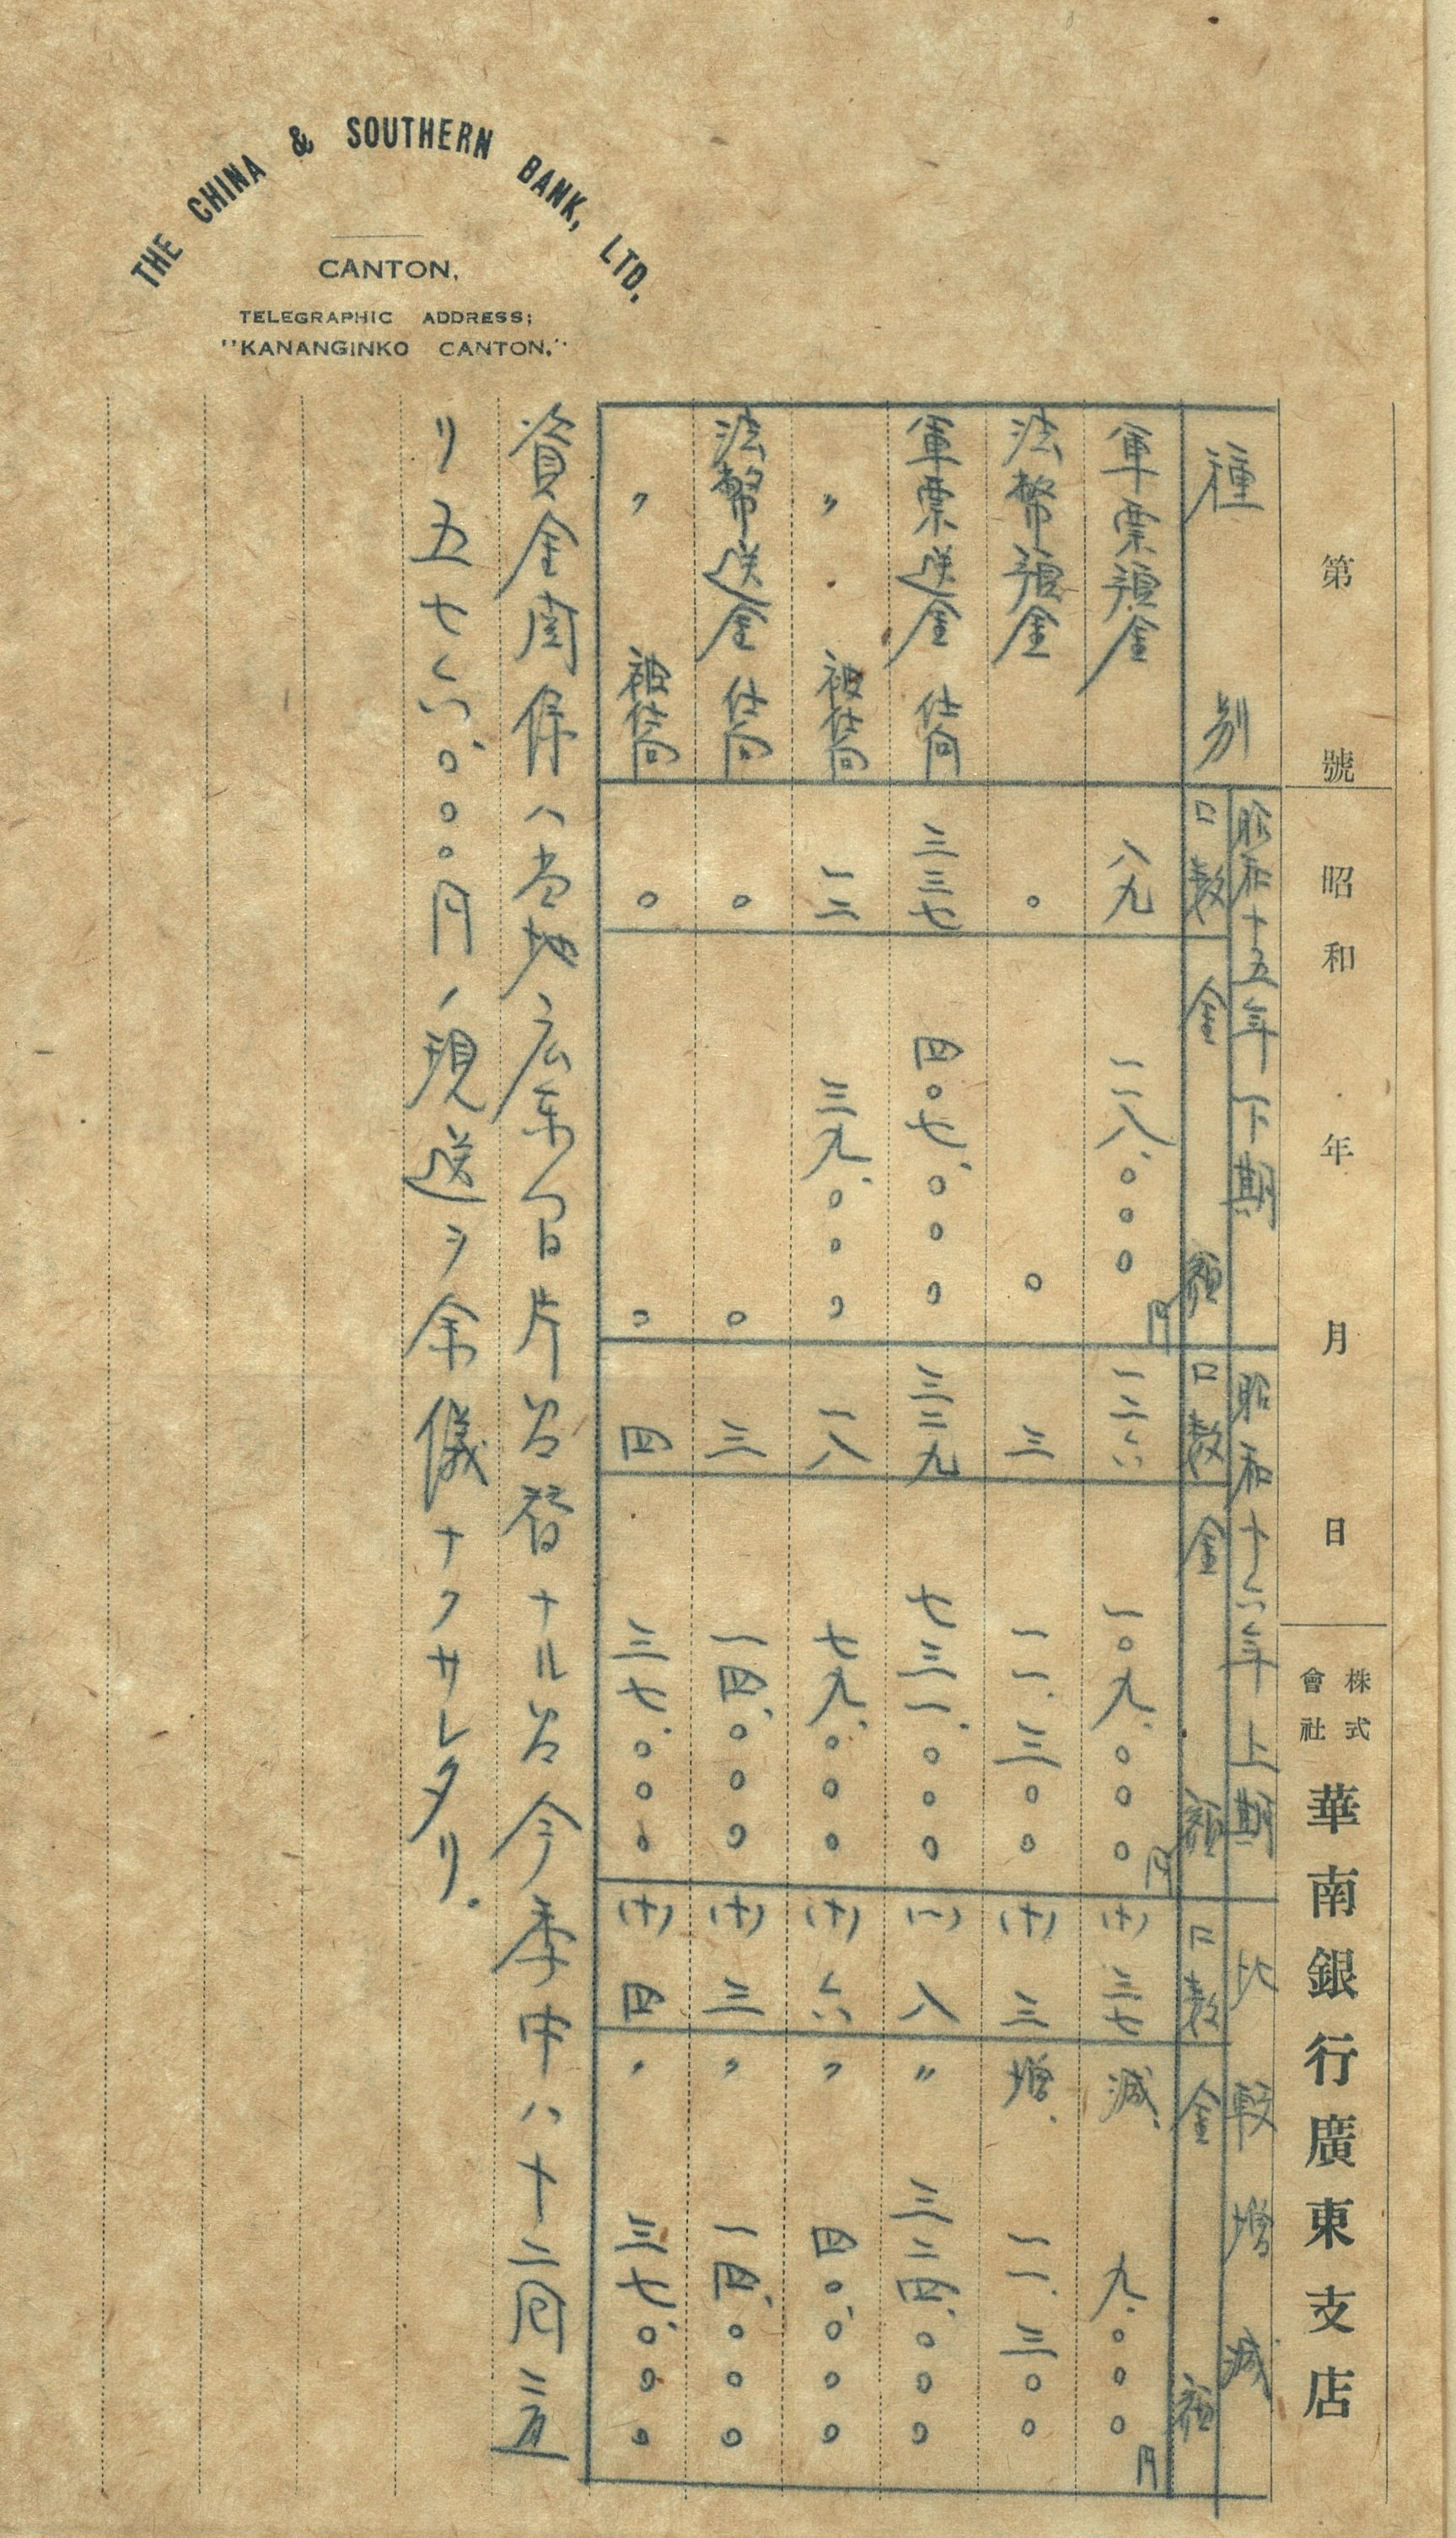 THE CHINA & SOUTHERN BANK, LTD.
CANTON.
TELEGRAPHIC ADDRESS;
"KANANGINKO CANTON."
第 號 昭和 年 月 日 株式會社 華南銀行廣東支店
種別 昭和十五年下期 昭和十六年上期 比較增減
口数 金額 口数 金額 口数 金額
軍票預金 八九 一一八、〇〇〇円 一二六 一〇九、〇〇〇円 (十)三七 減、九、〇〇〇円
法幣預金 〇 〇 三 一一、三〇〇 (十)三 増、一一、三〇〇
軍票送金 仕向 三三七 四〇七、〇〇〇 三二九 七三一、〇〇〇 (一)八 〃 三二四、〇〇〇
〃 被仕向 一二 三九、〇〇〇 一八 七九、〇〇〇 (十)六 〃 四〇、〇〇〇
法幣送金 仕向 〇 〇 三 一四、〇〇〇 (十)三 〃 一四、〇〇〇
〃 被仕向 〇 〇 四 三七、〇〇〇 (十)四 〃 三七、〇〇〇
資金関係ハ当地広東向片為替ナル為今季中ハ十二回ニ亘
リ五七六、〇〇〇円ノ現送ヲ余儀ナクサレタリ。